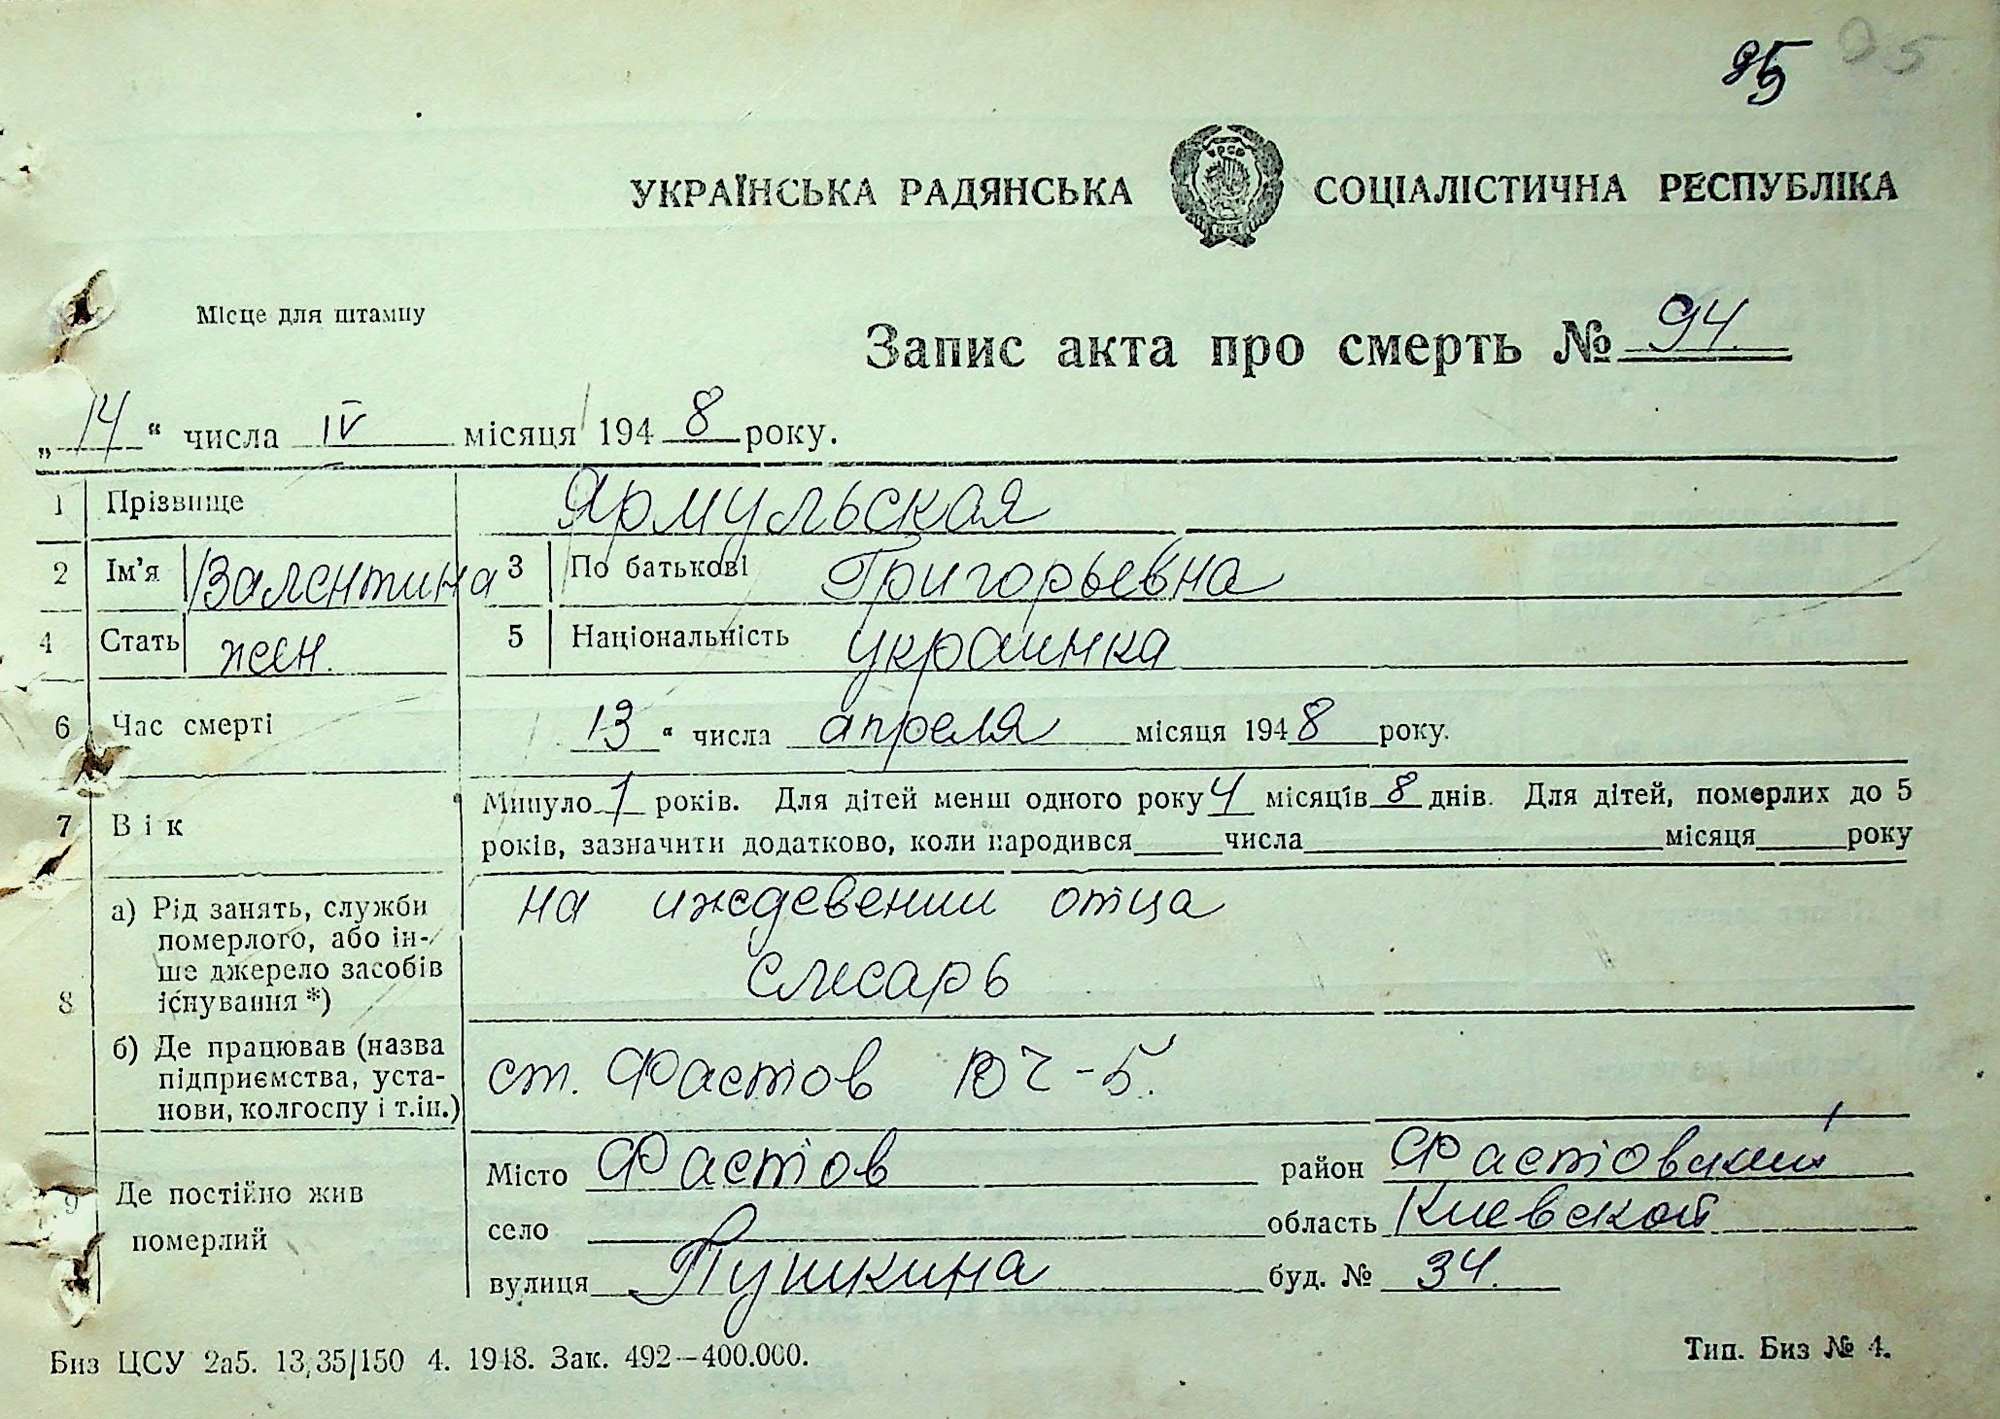 95 95
УКРАЇНСЬКА РАДЯНСЬКА СОЦІАЛІСТИЧНА РЕСПУБЛІКА
Місце для штампу
Запис акта про смерть № 94.
„14“ числа IV місяця 1948 року.
1 Прізвище Ярмульская
2 Ім'я Валентина 3 По батькові Григорьевна
4 Стать жен. 5 Національність украинка
6 Час смерті 13 “ числа апреля місяця 1948 року.
7 Вік Минуло 1 років. Для дітей менш одного року 4 місяців 8 днів. Для дітей, померлих до 5
років, зазначити додатково, коли народився числа місяця року
8 а) Рід занять, служби
померлого, або ін-
ше джерело засобів
існування *)
на иждевении отца
слесарь
б) Де працював (назва
підприємства, уста-
нови, колгоспу і т.ін.)
ст. Фастов ВЧ-5.
9 Де постійно жив
померлий
Місто Фастов район Фастовский
село область Киевской
вулиця Пушкина буд. № 34.
Биз ЦСУ 2а5. 13,35/150 4. 1948. Зак. 492—400.000. Тип. Биз № 4.